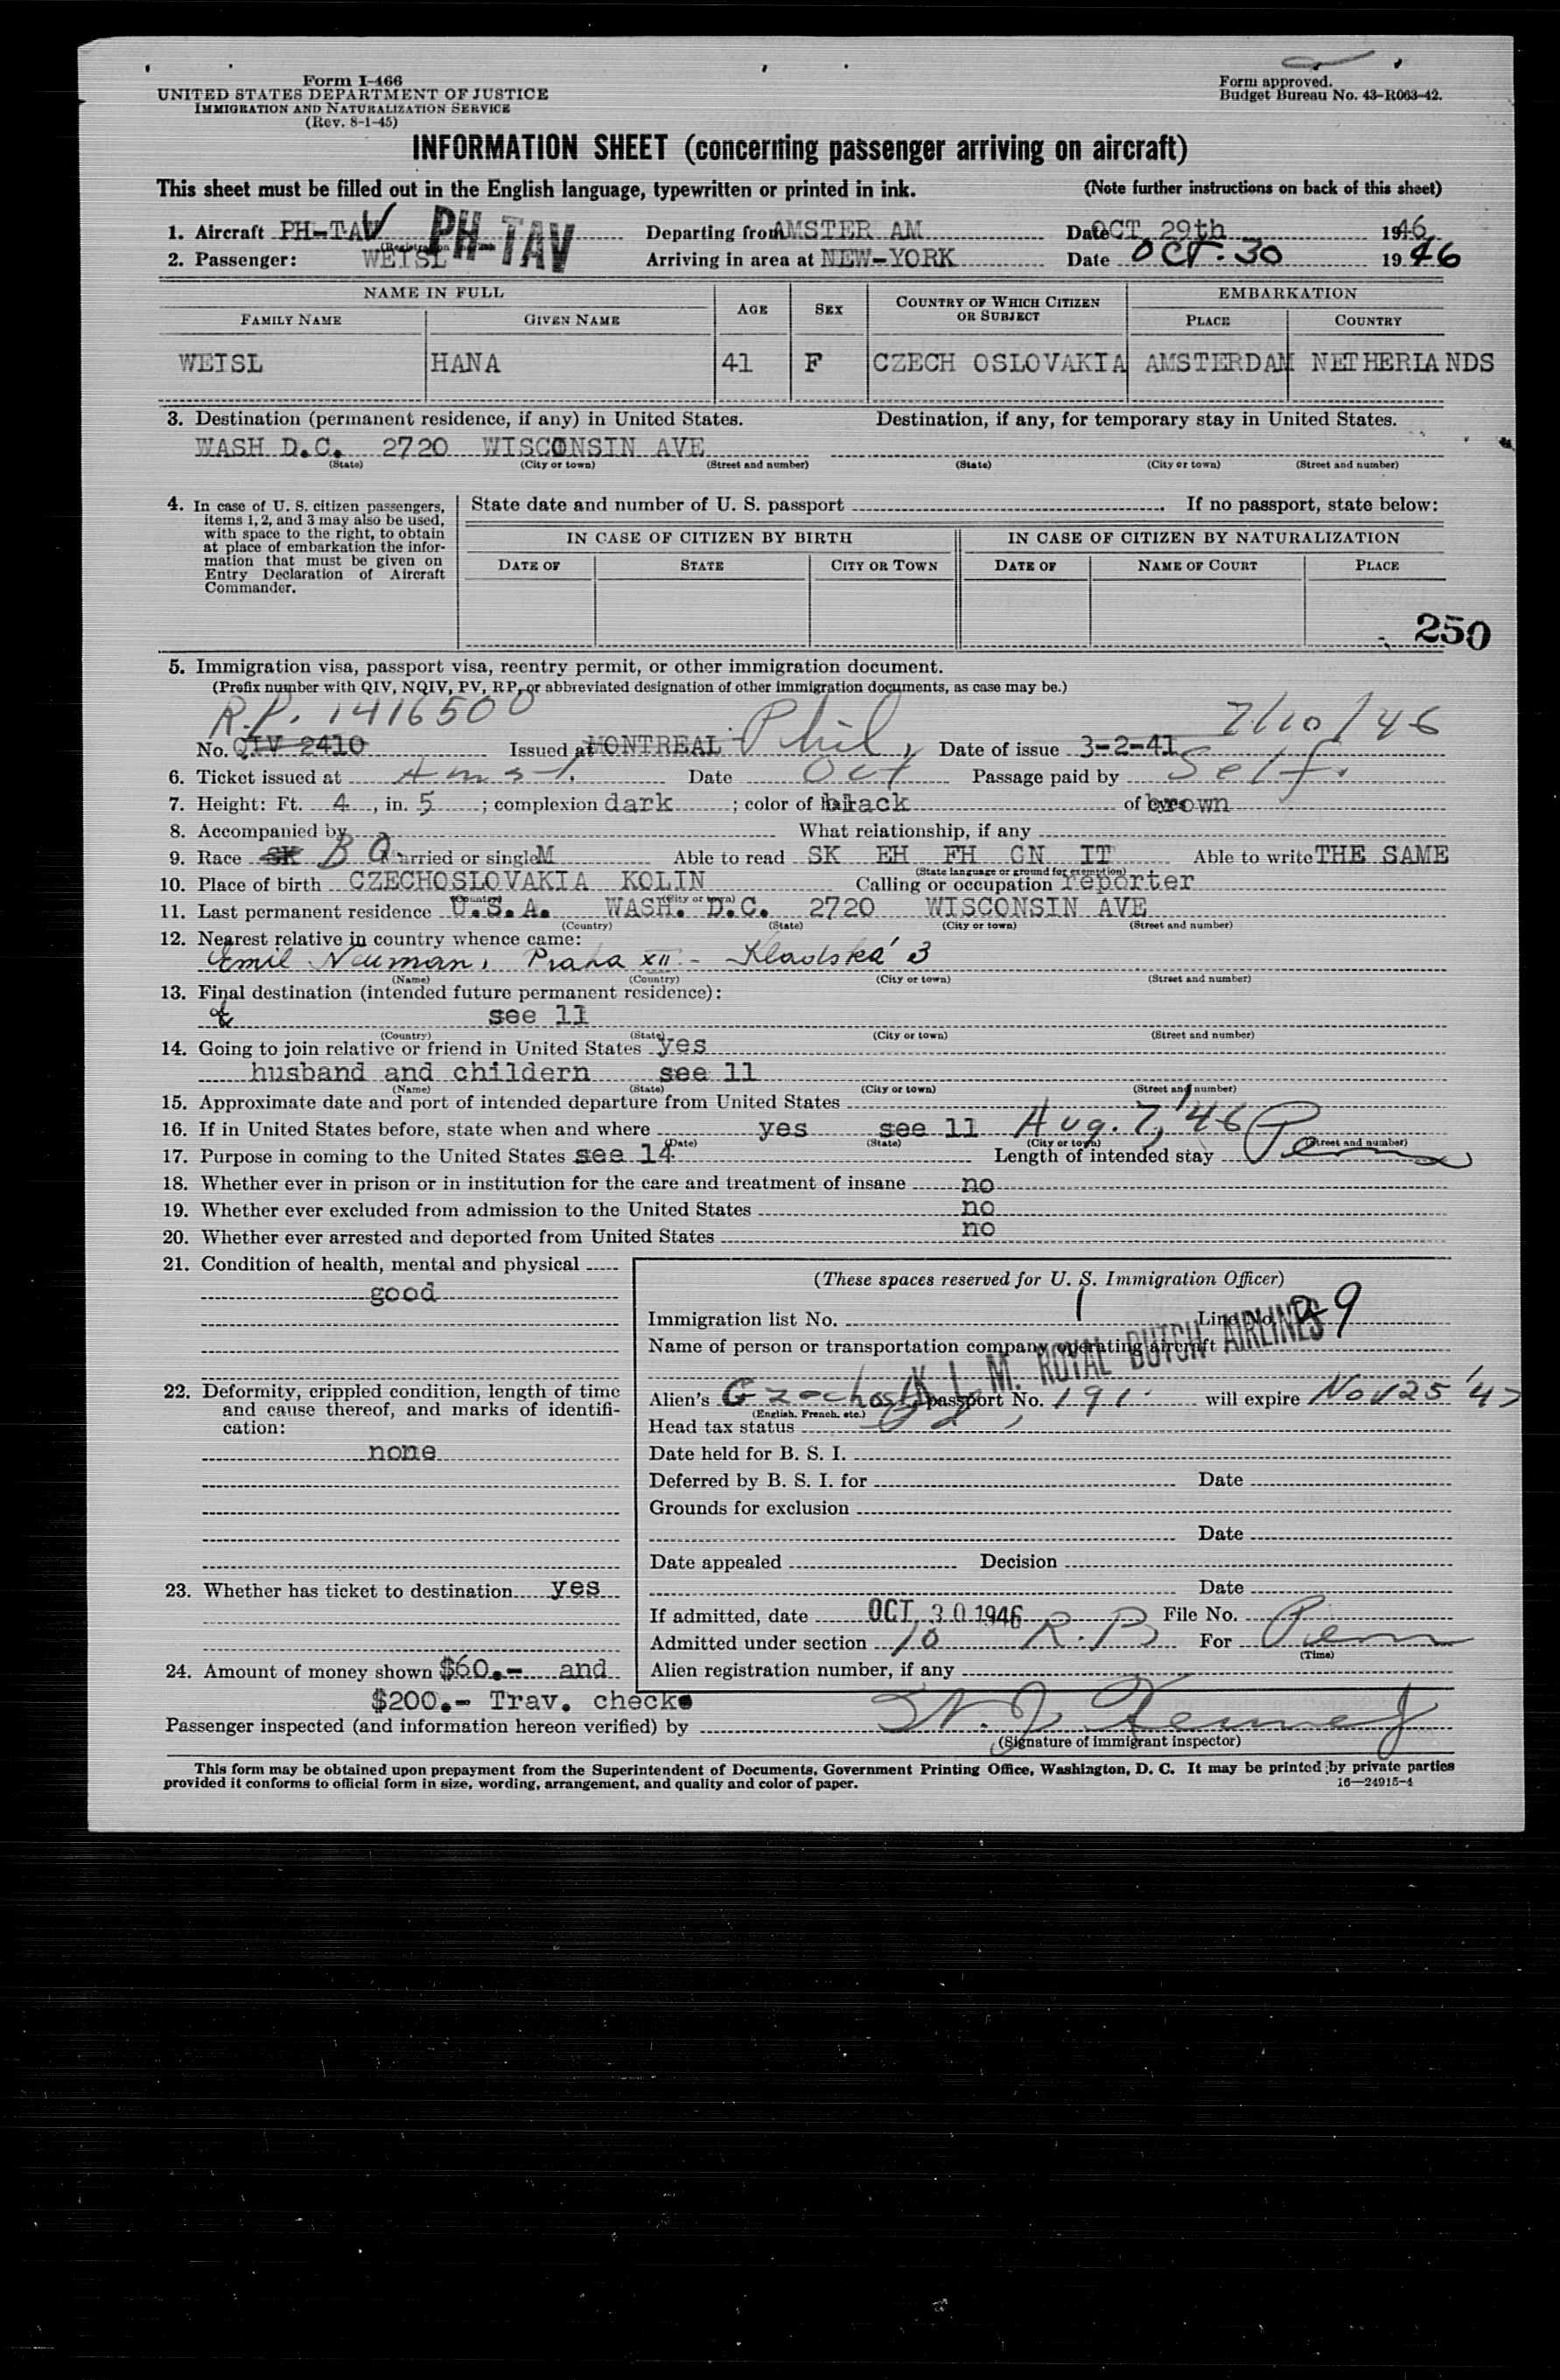 Form I-466
UNITED STATES DEPARTMENT OF JUSTICE
IMMIGRATION AND NATURALIZATION SERVICE
(Rev. 8-1-45)
Form approved.
Budget Bureau No. 43-R063-42.
INFORMATION SHEET (concerning passenger arriving on aircraft)
This sheet must be filled out in the English language, typewritten or printed in ink. (Note further instructions on back of this sheet)
1. Aircraft PH-TAV PH-TAV Departing from AMSTER AM Date OCT 29th 1946
2. Passenger: WEISL Arriving in area at NEW-YORK Date OCT. 30 1946
NAME IN FULL AGE SEX COUNTRY OF WHICH CITIZEN OR SUBJECT EMBARKATION
FAMILY NAME GIVEN NAME PLACE COUNTRY
WEISL HANA 41 F CZECH OSLOVAKIA AMSTERDAM NETHERLANDS
3. Destination (permanent residence, if any) in United States. Destination, if any, for temporary stay in United States.
WASH D.C. 2720 WISCONSIN AVE
(State) (City or town) (Street and number) (State) (City or town) (Street and number)
4. In case of U. S. citizen passengers, items 1, 2, and 3 may also be used, with space to the right, to obtain at place of embarkation the information that must be given on Entry Declaration of Aircraft Commander.
State date and number of U. S. passport If no passport, state below:
IN CASE OF CITIZEN BY BIRTH IN CASE OF CITIZEN BY NATURALIZATION
DATE OF STATE CITY OR TOWN DATE OF NAME OF COURT PLACE
250
5. Immigration visa, passport visa, reentry permit, or other immigration document.
(Prefix number with QIV, NQIV, PV, RP, or abbreviated designation of other immigration documents, as case may be.)
R.P. 1416500 Phil, 7/10/46
No. QIV 2410 Issued at MONTREAL Date of issue 3-2-41
6. Ticket issued at Amst. Date Oct Passage paid by Self.
7. Height: Ft. 4, in. 5; complexion dark; color of hair black of eyes brown
8. Accompanied by What relationship, if any
9. Race SK Married or single M Able to read SK EH FH GN IT Able to write THE SAME
(State language or ground for exemption)
10. Place of birth CZECHOSLOVAKIA KOLIN Calling or occupation reporter
(Country) (City or town)
11. Last permanent residence U.S.A. WASH. D.C. 2720 WISCONSIN AVE
(Country) (State) (City or town) (Street and number)
12. Nearest relative in country whence came:
Emil Neuman, Praha XII - Kladská 3
(Name) (Country) (City or town) (Street and number)
13. Final destination (intended future permanent residence):
see 11
(Country) (State) (City or town) (Street and number)
14. Going to join relative or friend in United States yes
husband and childern see 11
(Name) (State) (City or town) (Street and number)
15. Approximate date and port of intended departure from United States
16. If in United States before, state when and where yes see 11 Aug. 7, '46
(Date) (State) (City or town) (Street and number)
17. Purpose in coming to the United States see 14 Length of intended stay Perm
18. Whether ever in prison or in institution for the care and treatment of insane no
19. Whether ever excluded from admission to the United States no
20. Whether ever arrested and deported from United States no
21. Condition of health, mental and physical
good
(These spaces reserved for U. S. Immigration Officer)
Immigration list No. 1 Line No. 9
Name of person or transportation company operating aircraft
K. L. M. ROYAL DUTCH AIRLINES
22. Deformity, crippled condition, length of time and cause thereof, and marks of identification:
none
Alien's Czechosl. passport No. 191 will expire Nov 25 '47
(English, French, etc.)
Head tax status
Date held for B. S. I.
Deferred by B. S. I. for Date
Grounds for exclusion
Date
Date appealed Decision
Date
23. Whether has ticket to destination yes
If admitted, date OCT 30 1946 File No.
Admitted under section 10 R.P. For Perm
(Time)
24. Amount of money shown $60.- and
$200.- Trav. checks
Alien registration number, if any
Passenger inspected (and information hereon verified) by
(Signature of immigrant inspector)
This form may be obtained upon prepayment from the Superintendent of Documents, Government Printing Office, Washington, D. C. It may be printed by private parties
provided it conforms to official form in size, wording, arrangement, and quality and color of paper. 16—24915-4